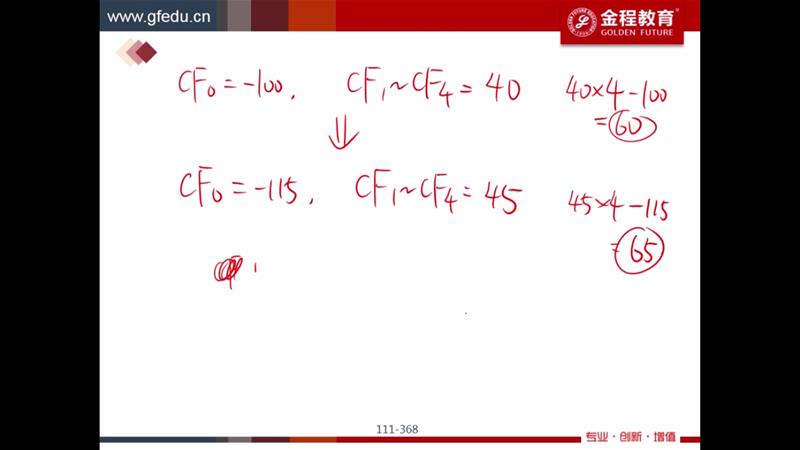 www.gfedu.cn
金程教育
GOLDEN FUTURE
CF₀=-100, CF₁~CF₄=40 40×4-100
=60
⇓
CF₀=-115, CF₁~CF₄=45 45×4-115
=65
111-368
专业·创新·增值